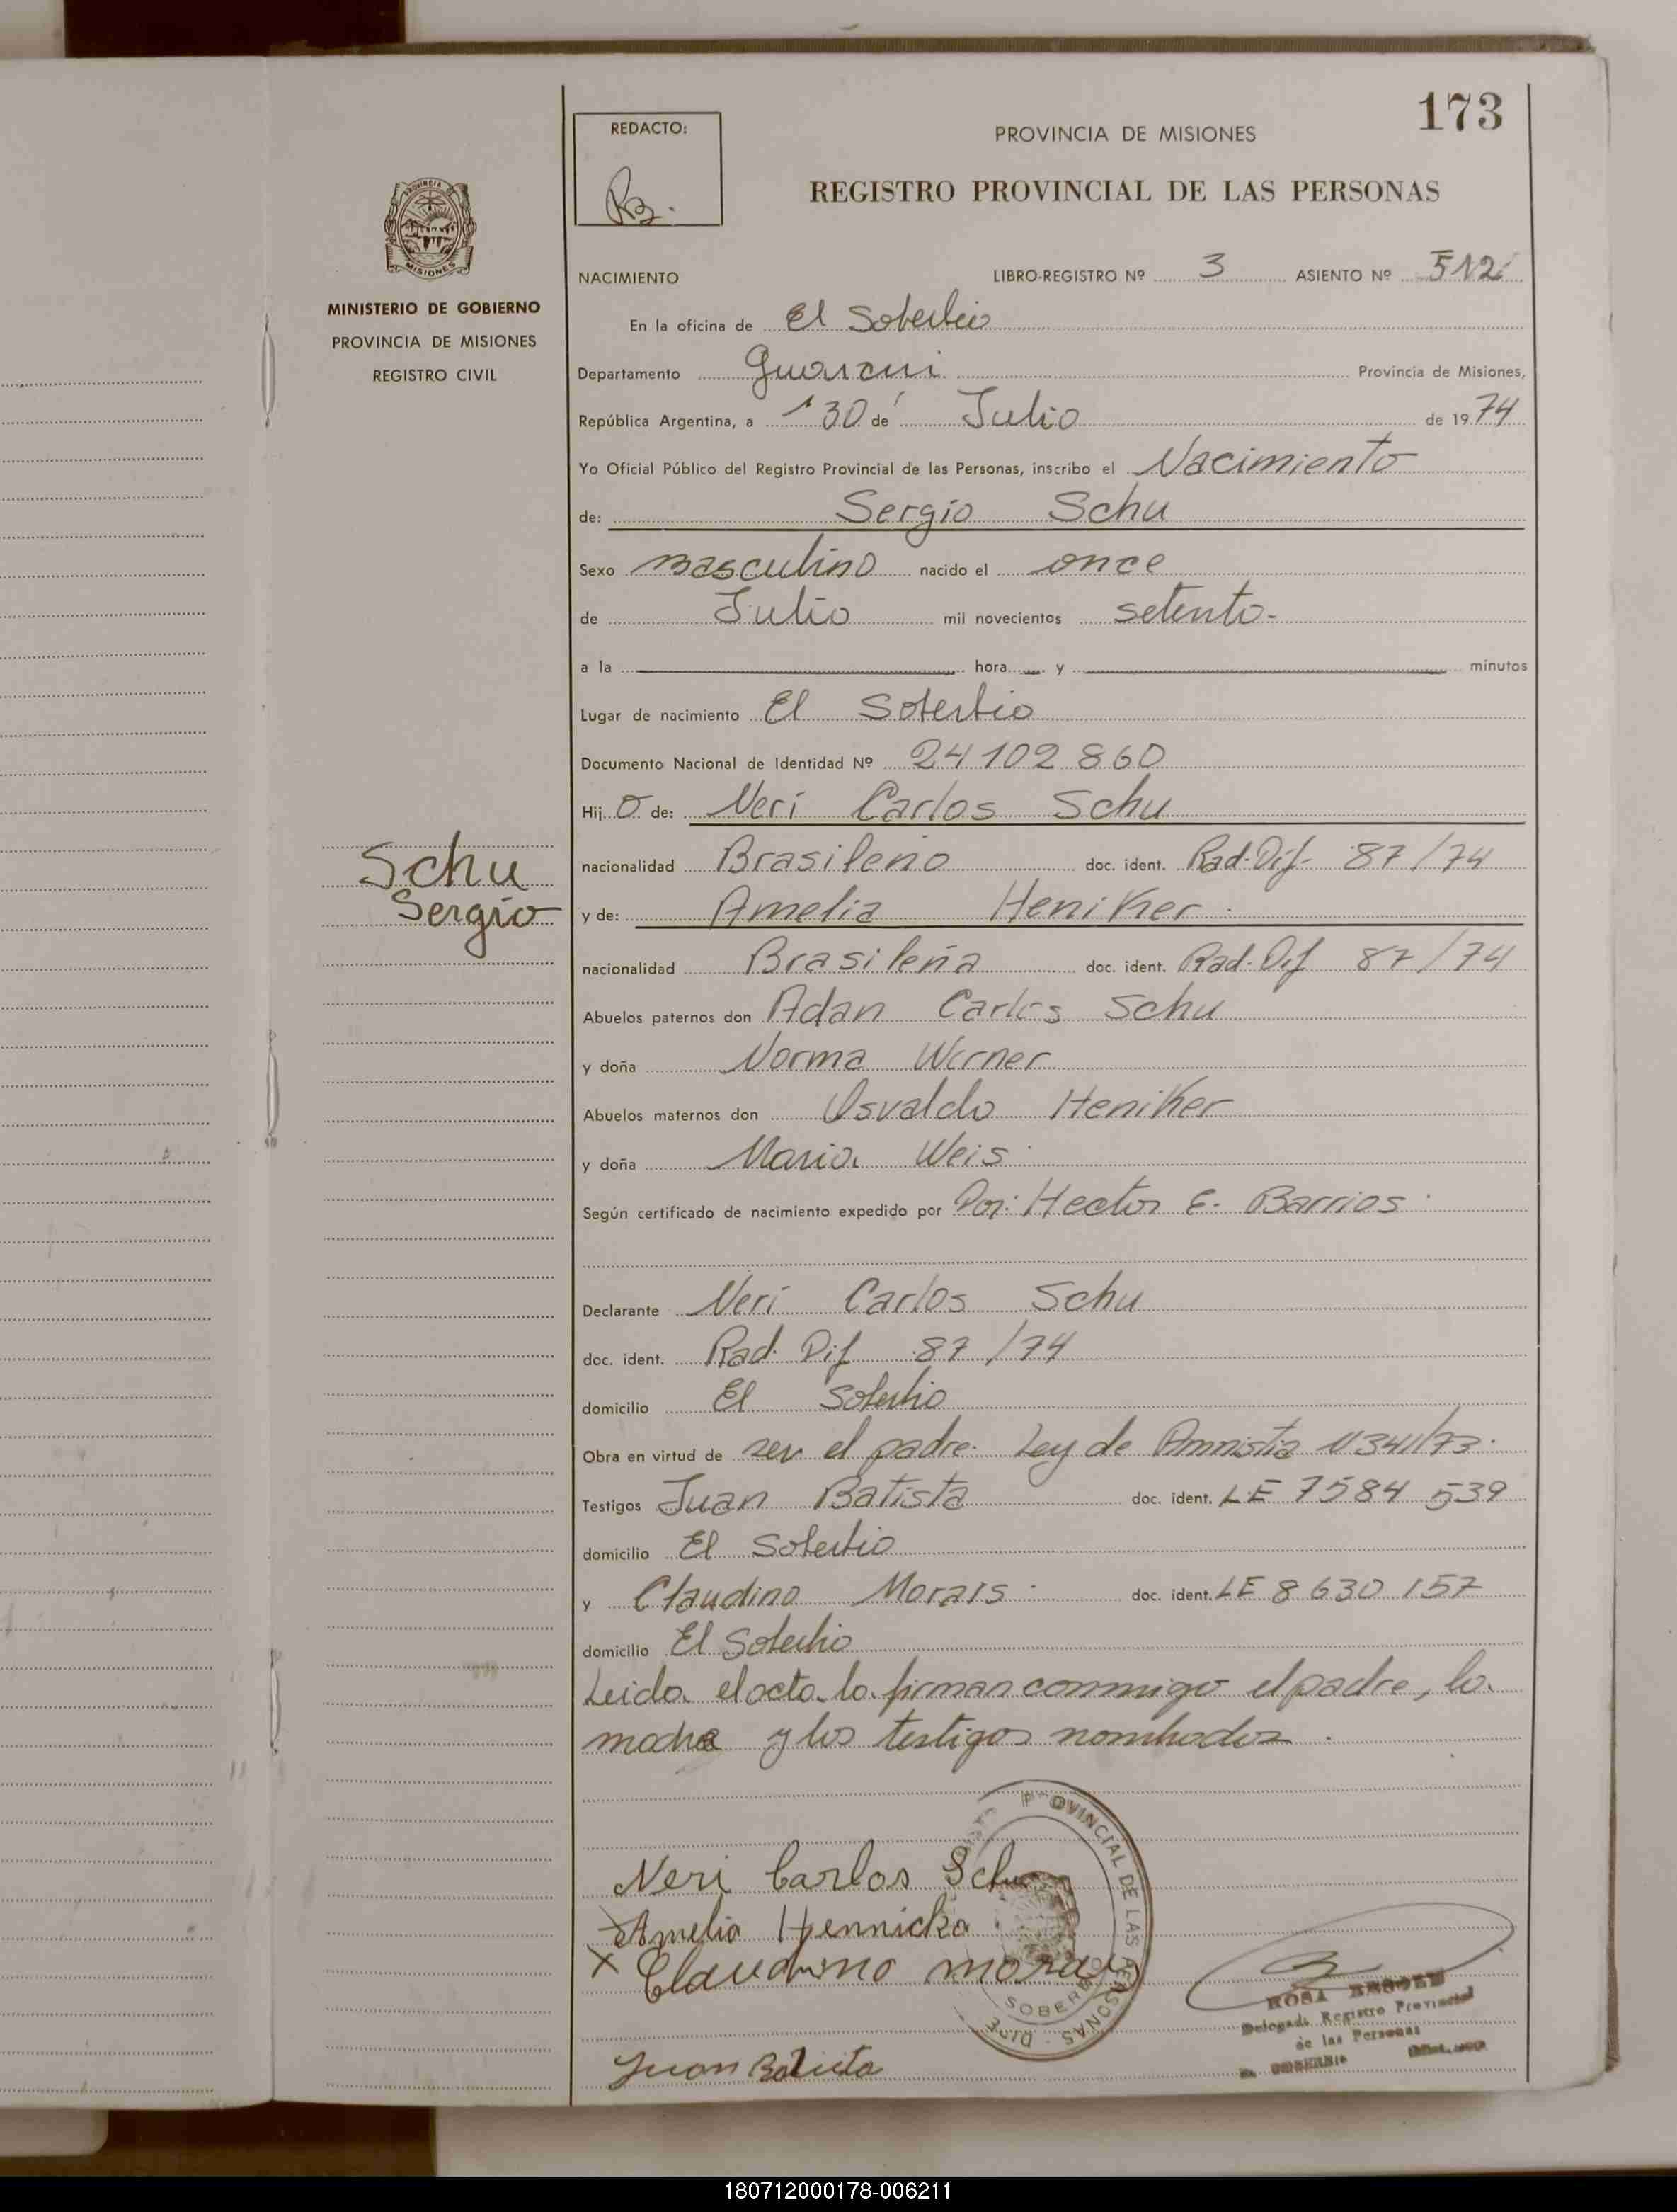 173
REDACTO:
PROVINCIA DE MISIONES
REGISTRO PROVINCIAL DE LAS PERSONAS
PROVINCIA DE
MISIONES
MINISTERIO DE GOBIERNO
PROVINCIA DE MISIONES
REGISTRO CIVIL
NACIMIENTO LIBRO-REGISTRO Nº 3 ASIENTO Nº 512
En la oficina de El Soberbio
Departamento Guarani Provincia de Misiones,
República Argentina, a 30 de Julio de 1974
Yo Oficial Público del Registro Provincial de las Personas, inscribo el Nacimiento
de: Sergio Schu
Sexo masculino nacido el once
de Julio mil novecientos setenta-
a la hora y minutos
Lugar de nacimiento El Soberbio
Documento Nacional de Identidad Nº 24102860
Hij o de: Neri Carlos Schu
nacionalidad Brasileño doc. ident. Rad. Dif- 87/74
Schu
Sergio
y de: Amelia Heniker
nacionalidad Brasileña doc. ident. Rad. Dif 87/74
Abuelos paternos don Adan Carlos Schu
y doña Norma Werner
Abuelos maternos don Osvaldo Heniker
y doña Maria Weis
Según certificado de nacimiento expedido por Hector E. Barrios
Declarante Neri Carlos Schu
doc. ident. Rad. Dif 87/74
domicilio El Soberbio
Obra en virtud de ser el padre. Ley de Amnistia 1134/73.
Testigos Juan Batista doc. ident. LE 7584 539
domicilio El Soberbio
y Claudino Morais doc. ident. LE 8630157
domicilio El Soberbio
Leida el acta la firman conmigo el padre, la
madre y los testigos nombrados.
PROVINCIAL DE LAS PERSONAS
SOBERBIO
Neri Carlos Schu
x Amelia Hennicka
x Claudino morais
ROSA
Delegada Registro Provincial
de las Personas
EL SOBERBIO
Juan Batista
180712000178-006211